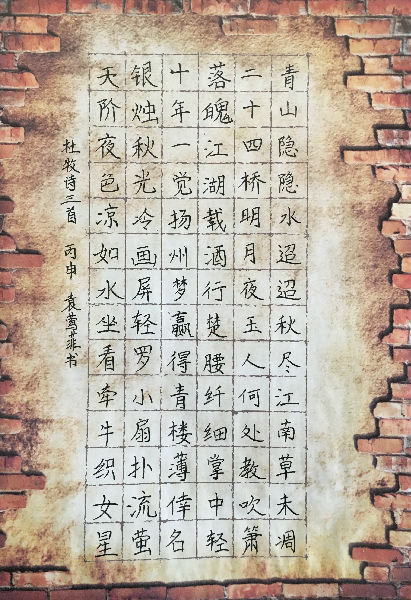 青山隐隐水迢迢秋尽江南草未凋
二十四桥明月夜玉人何处教吹箫
落魄江湖载酒行楚腰纤细掌中轻
十年一觉扬州梦赢得青楼薄倖名
银烛秋光冷画屏轻罗小扇扑流萤
天阶夜色凉如水坐看牵牛织女星
杜牧诗三首 丙申 袁莺菲书